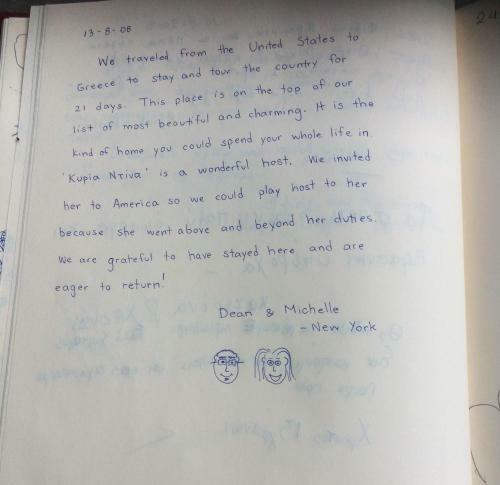 13-8-08
We traveled from the United States to
Greece to stay and tour the country for
21 days. This place is on the top of our
list of most beautiful and charming. It is the
kind of home you could spend your whole life in
'Kupia Ntiva' is a wonderful host. We invited
her to America so we could play host to her
because she went above and beyond her duties.
We are grateful to have stayed here and are
eager to return!
Dean & Michelle
- New York
24